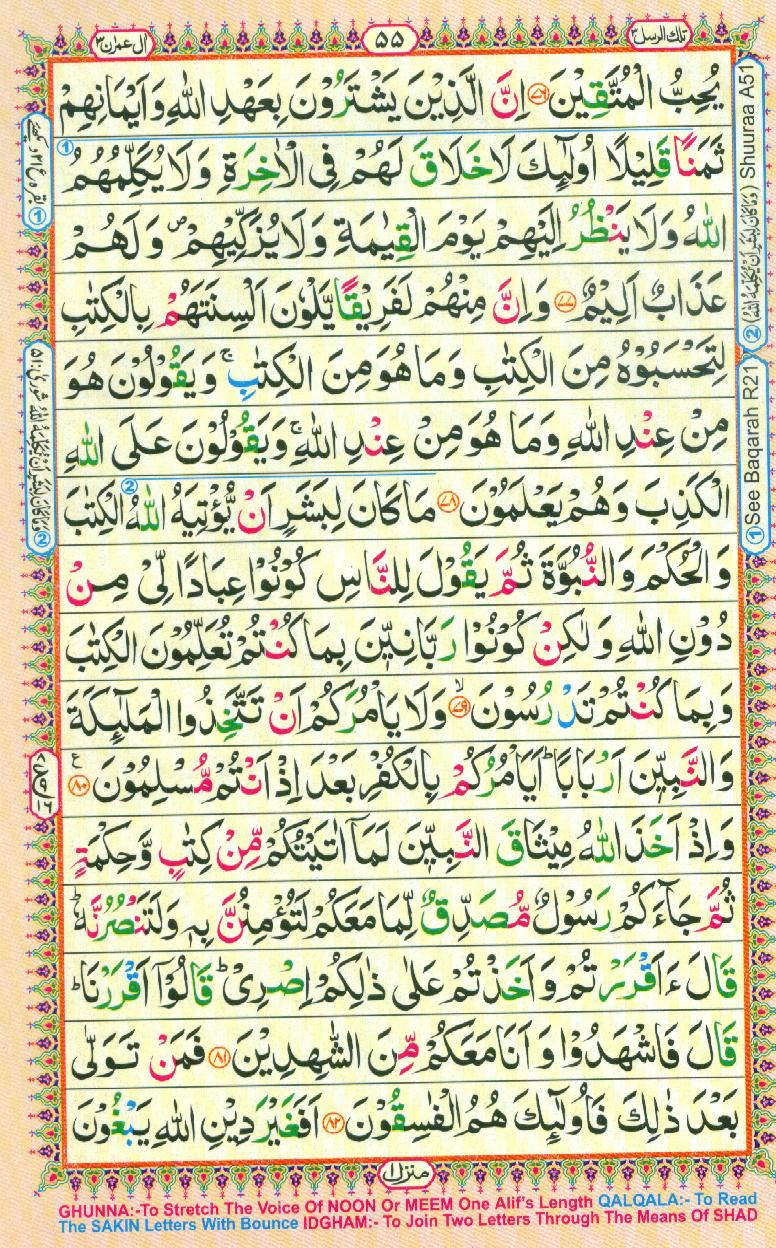 تلك الرسل ٣
٥٥
اٰل عمرٰن ٣
يُحِبُّ الْمُتَّقِيْنَ ﴿٧٦﴾ اِنَّ الَّذِيْنَ يَشْتَرُوْنَ بِعَهْدِ اللّٰهِ وَاَيْمَانِهِمْ
ثَمَنًا قَلِيْلًا اُولٰٓئِكَ لَا خَلَاقَ لَهُمْ فِى الْاٰخِرَةِ وَلَا يُكَلِّمُهُمُ ①
اللّٰهُ وَلَا يَنْظُرُ اِلَيْهِمْ يَوْمَ الْقِيٰمَةِ وَلَا يُزَكِّيْهِمْ ۖ وَلَهُمْ
عَذَابٌ اَلِيْمٌ ﴿٧٧﴾ وَاِنَّ مِنْهُمْ لَفَرِيْقًا يَّلْوٗنَ اَلْسِنَتَهُمْ بِالْكِتٰبِ
لِتَحْسَبُوْهُ مِنَ الْكِتٰبِ وَمَا هُوَ مِنَ الْكِتٰبِ ۚ وَيَقُوْلُوْنَ هُوَ
مِنْ عِنْدِ اللّٰهِ وَمَا هُوَ مِنْ عِنْدِ اللّٰهِ ۚ وَيَقُوْلُوْنَ عَلَى اللّٰهِ
الْكَذِبَ وَهُمْ يَعْلَمُوْنَ ﴿٧٨﴾ مَا كَانَ لِبَشَرٍ اَنْ يُّؤْتِيَهُ اللّٰهُ ② الْكِتٰبَ
وَالْحُكْمَ وَالنُّبُوَّةَ ثُمَّ يَقُوْلَ لِلنَّاسِ كُوْنُوْا عِبَادًا لِّىْ مِنْ
دُوْنِ اللّٰهِ وَلٰكِنْ كُوْنُوْا رَبَّانِيّٖنَ بِمَا كُنْتُمْ تُعَلِّمُوْنَ الْكِتٰبَ
وَبِمَا كُنْتُمْ تَدْرُسُوْنَ ﴿٧٩﴾ۙ وَلَا يَاْمُرَكُمْ اَنْ تَتَّخِذُوا الْمَلٰٓئِكَةَ
وَالنَّبِيّٖنَ اَرْبَابًا ؕ اَيَاْمُرُكُمْ بِالْكُفْرِ بَعْدَ اِذْ اَنْتُمْ مُّسْلِمُوْنَ ﴿٨٠﴾ ع
وَاِذْ اَخَذَ اللّٰهُ مِيْثَاقَ النَّبِيّٖنَ لَمَاۤ اٰتَيْتُكُمْ مِّنْ كِتٰبٍ وَّحِكْمَةٍ
ثُمَّ جَآءَكُمْ رَسُوْلٌ مُّصَدِّقٌ لِّمَا مَعَكُمْ لَتُؤْمِنُنَّ بِهٖ وَلَتَنْصُرُنَّهٗ ؕ
قَالَ ءَاَقْرَرْتُمْ وَاَخَذْتُمْ عَلٰى ذٰلِكُمْ اِصْرِىْ ؕ قَالُوْۤا اَقْرَرْنَا ؕ
قَالَ فَاشْهَدُوْا وَاَنَا مَعَكُمْ مِّنَ الشّٰهِدِيْنَ ﴿٨١﴾ فَمَنْ تَوَلّٰى
بَعْدَ ذٰلِكَ فَاُولٰٓئِكَ هُمُ الْفٰسِقُوْنَ ﴿٨٢﴾ اَفَغَيْرَ دِيْنِ اللّٰهِ يَبْغُوْنَ
منزل ١
② (وَمَا كَانَ لِبَشَرٍ اَنْ يُّكَلِّمَهُ اللّٰهُ) Shuuraa A51
① See Baqarah R21
GHUNNA:-To Stretch The Voice Of NOON Or MEEM One Alif's Length QALQALA:- To Read
The SAKIN Letters With Bounce IDGHAM:- To Join Two Letters Through The Means Of SHAD